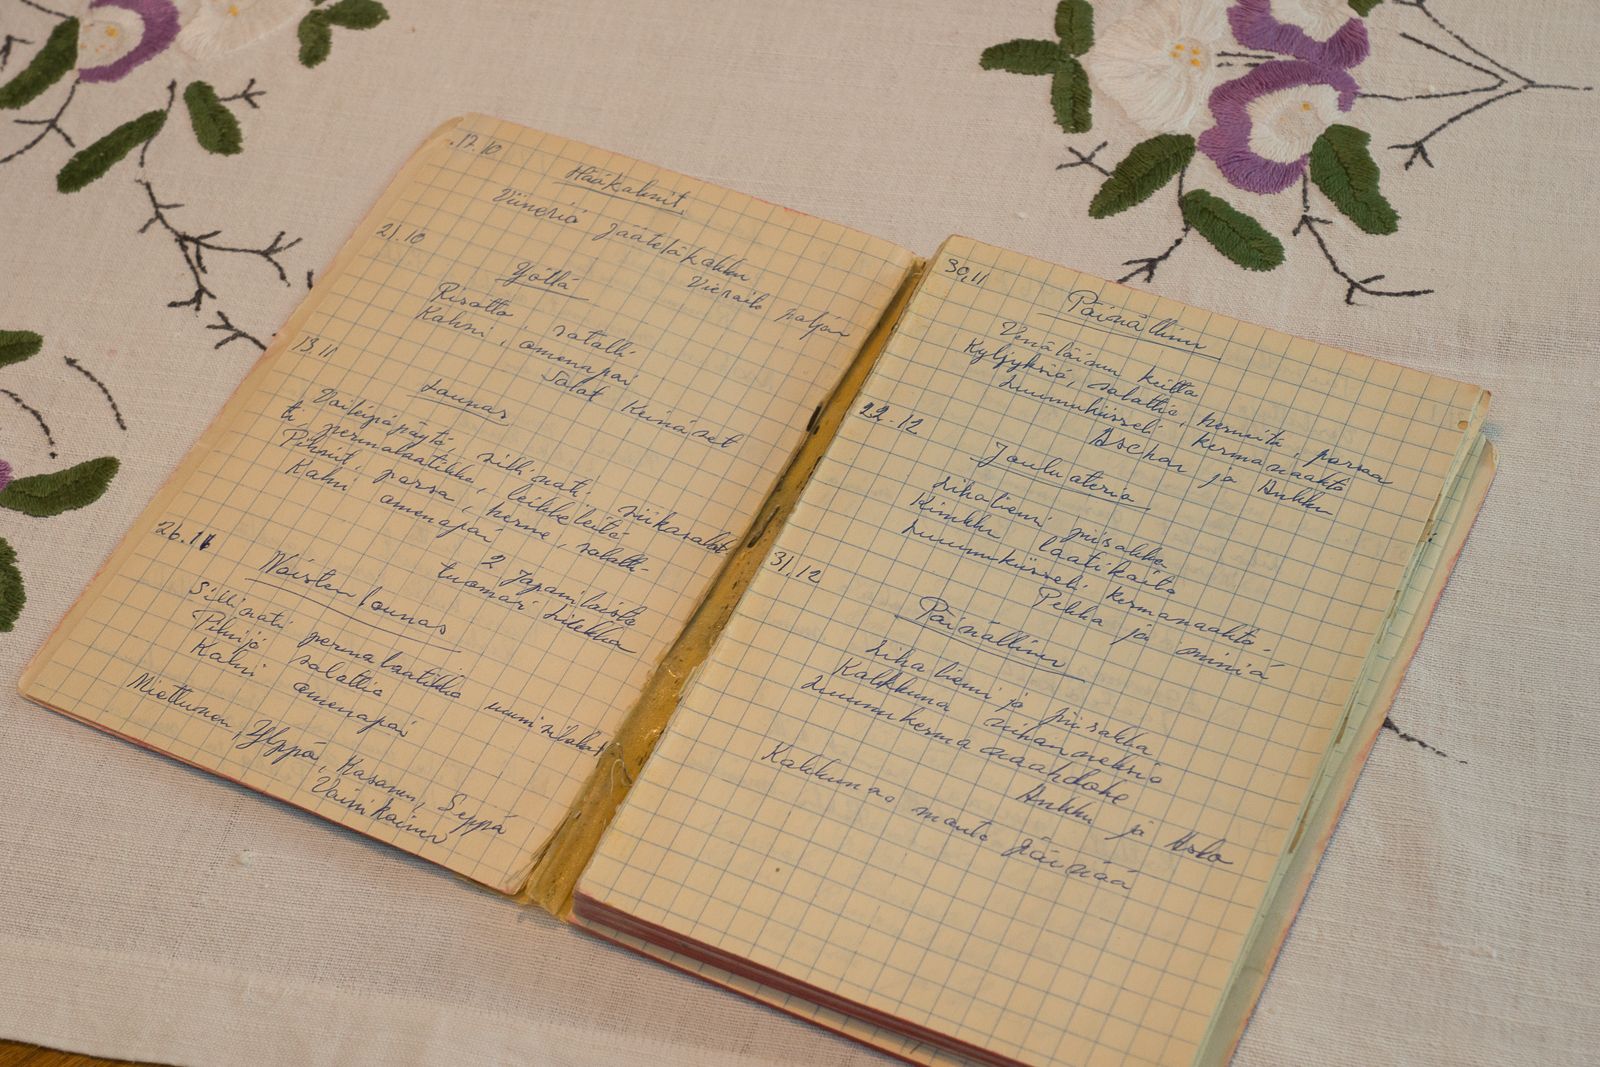 17.10
Hääkahvit.
Viineriä jäätelökakku
Vieraita paljon
21.10
Yöllä
Risotto, salatti
Kahvi, omenapai
Salot Keinäset
13.11
Lounas
Voileipäpöytä, sillivati, siikasalatti
ti, perunalaatikko, leikkeleitä
Pihvit, parsa, herne, salatti-
Kahvi omenapai
2 Japanilaista
tuomari Lilekka
26.11
Naisten lounas
Sillivati perunalaatikko uunisilakat
Pihvjä salattia
Kahvi omenapai
Miettunen, Ylppö, Hasanen, Seppä
Vainikainen
30.11
Päivällinen
Venäläinen keitto
Kyljyksiä, salattia, herneitä, parsaa
Luumukiisseli kermavaahto
Oscar ja Ankku
22.12
Jouluateria
Lihaliemi piirakka
Kinkku laatikoita
Luumukiisseli kermavaahto-
Pekka ja miniä
31.12
Päivällinen
Lihaliemi ja piirakka
Kalkkuna vihanneksia
Luumukerma vaahdoke
Ankku ja Asko
Kalkkunas maato päivää